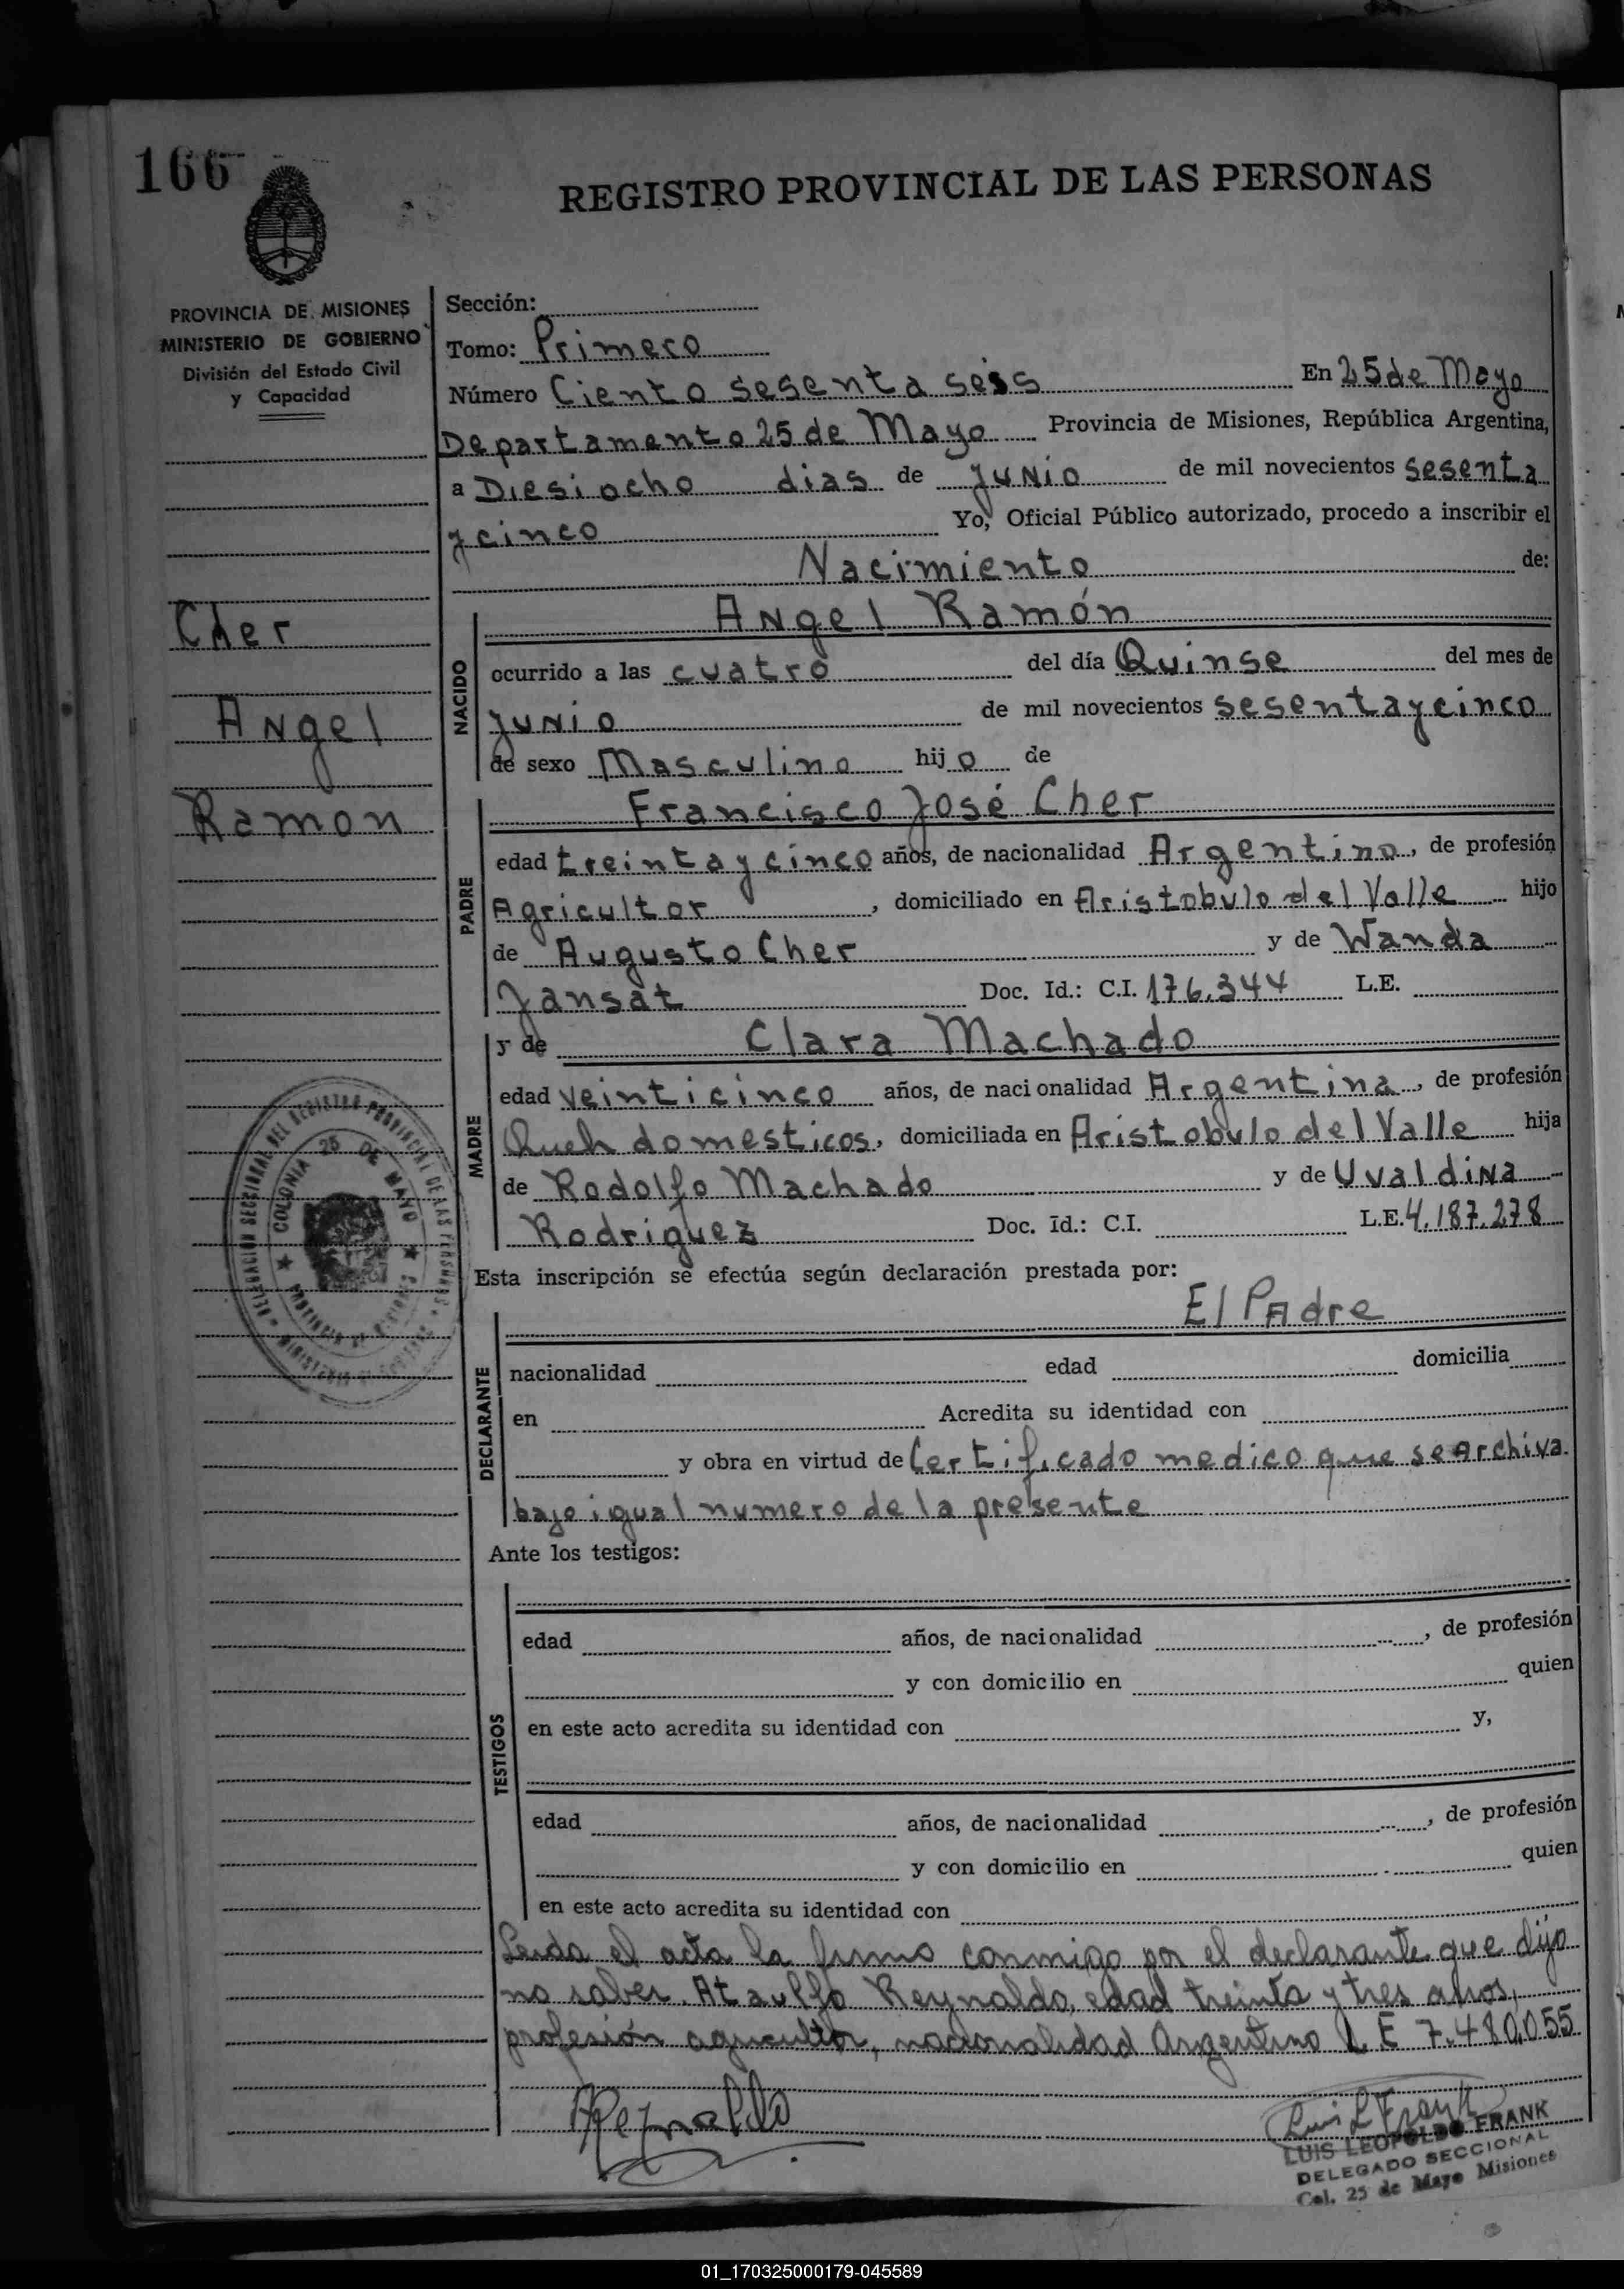 166
REGISTRO PROVINCIAL DE LAS PERSONAS
PROVINCIA DE MISIONES
MINISTERIO DE GOBIERNO
División del Estado Civil
y Capacidad
Cher
Angel
Ramon
Sección:
Tomo: Primero
Número Ciento sesenta seis En 25 de Mayo
Departamento 25 de Mayo Provincia de Misiones, República Argentina,
a Diesiocho dias de Junio de mil novecientos sesenta
y cinco Yo, Oficial Público autorizado, procedo a inscribir el
Nacimiento de:
NACIDO
Angel Ramón
ocurrido a las cuatro del día Quinse del mes de
Junio de mil novecientos sesenta y cinco
de sexo Masculino hijo de
PADRE
Francisco José Cher
edad treinta y cinco años, de nacionalidad Argentino, de profesión
Agricultor, domiciliado en Aristobulo del Valle hijo
de Augusto Cher y de Wanda
Jansat Doc. Id.: C.I. 176.344 L.E.
MADRE
y de Clara Machado
edad veinticinco años, de nacionalidad Argentina, de profesión
Queh domesticos, domiciliada en Aristobulo del Valle hija
de Rodolfo Machado y de Uvaldina
Rodriguez Doc. Id.: C.I. L.E. 4.187.278
Esta inscripción se efectúa según declaración prestada por:
DECLARANTE
El Padre
nacionalidad edad domicilia
en Acredita su identidad con
y obra en virtud de Certificado medico que se Archiva
bajo igual numero de la presente
Ante los testigos:
TESTIGOS
edad años, de nacionalidad , de profesión
y con domicilio en quien
en este acto acredita su identidad con y,
edad años, de nacionalidad , de profesión
y con domicilio en quien
en este acto acredita su identidad con
Leida el acta la firmo conmigo por el declarante que dijo
no saber. Ataulfo Reynaldo, edad treinta y tres años,
profesión agricultor, nacionalidad Argentino L.E 7.480.055
AReynaldo
Luis L Frank
LUIS LEOPOLDO FRANK
DELEGADO SECCIONAL
Col. 25 de Mayo Misiones
DELEGACION SECCIONAL DEL REGISTRO PROVINCIAL DE LAS PERSONAS
COLONIA 25 DE MAYO
PROVINCIA DE MISIONES
01_170325000179-045589